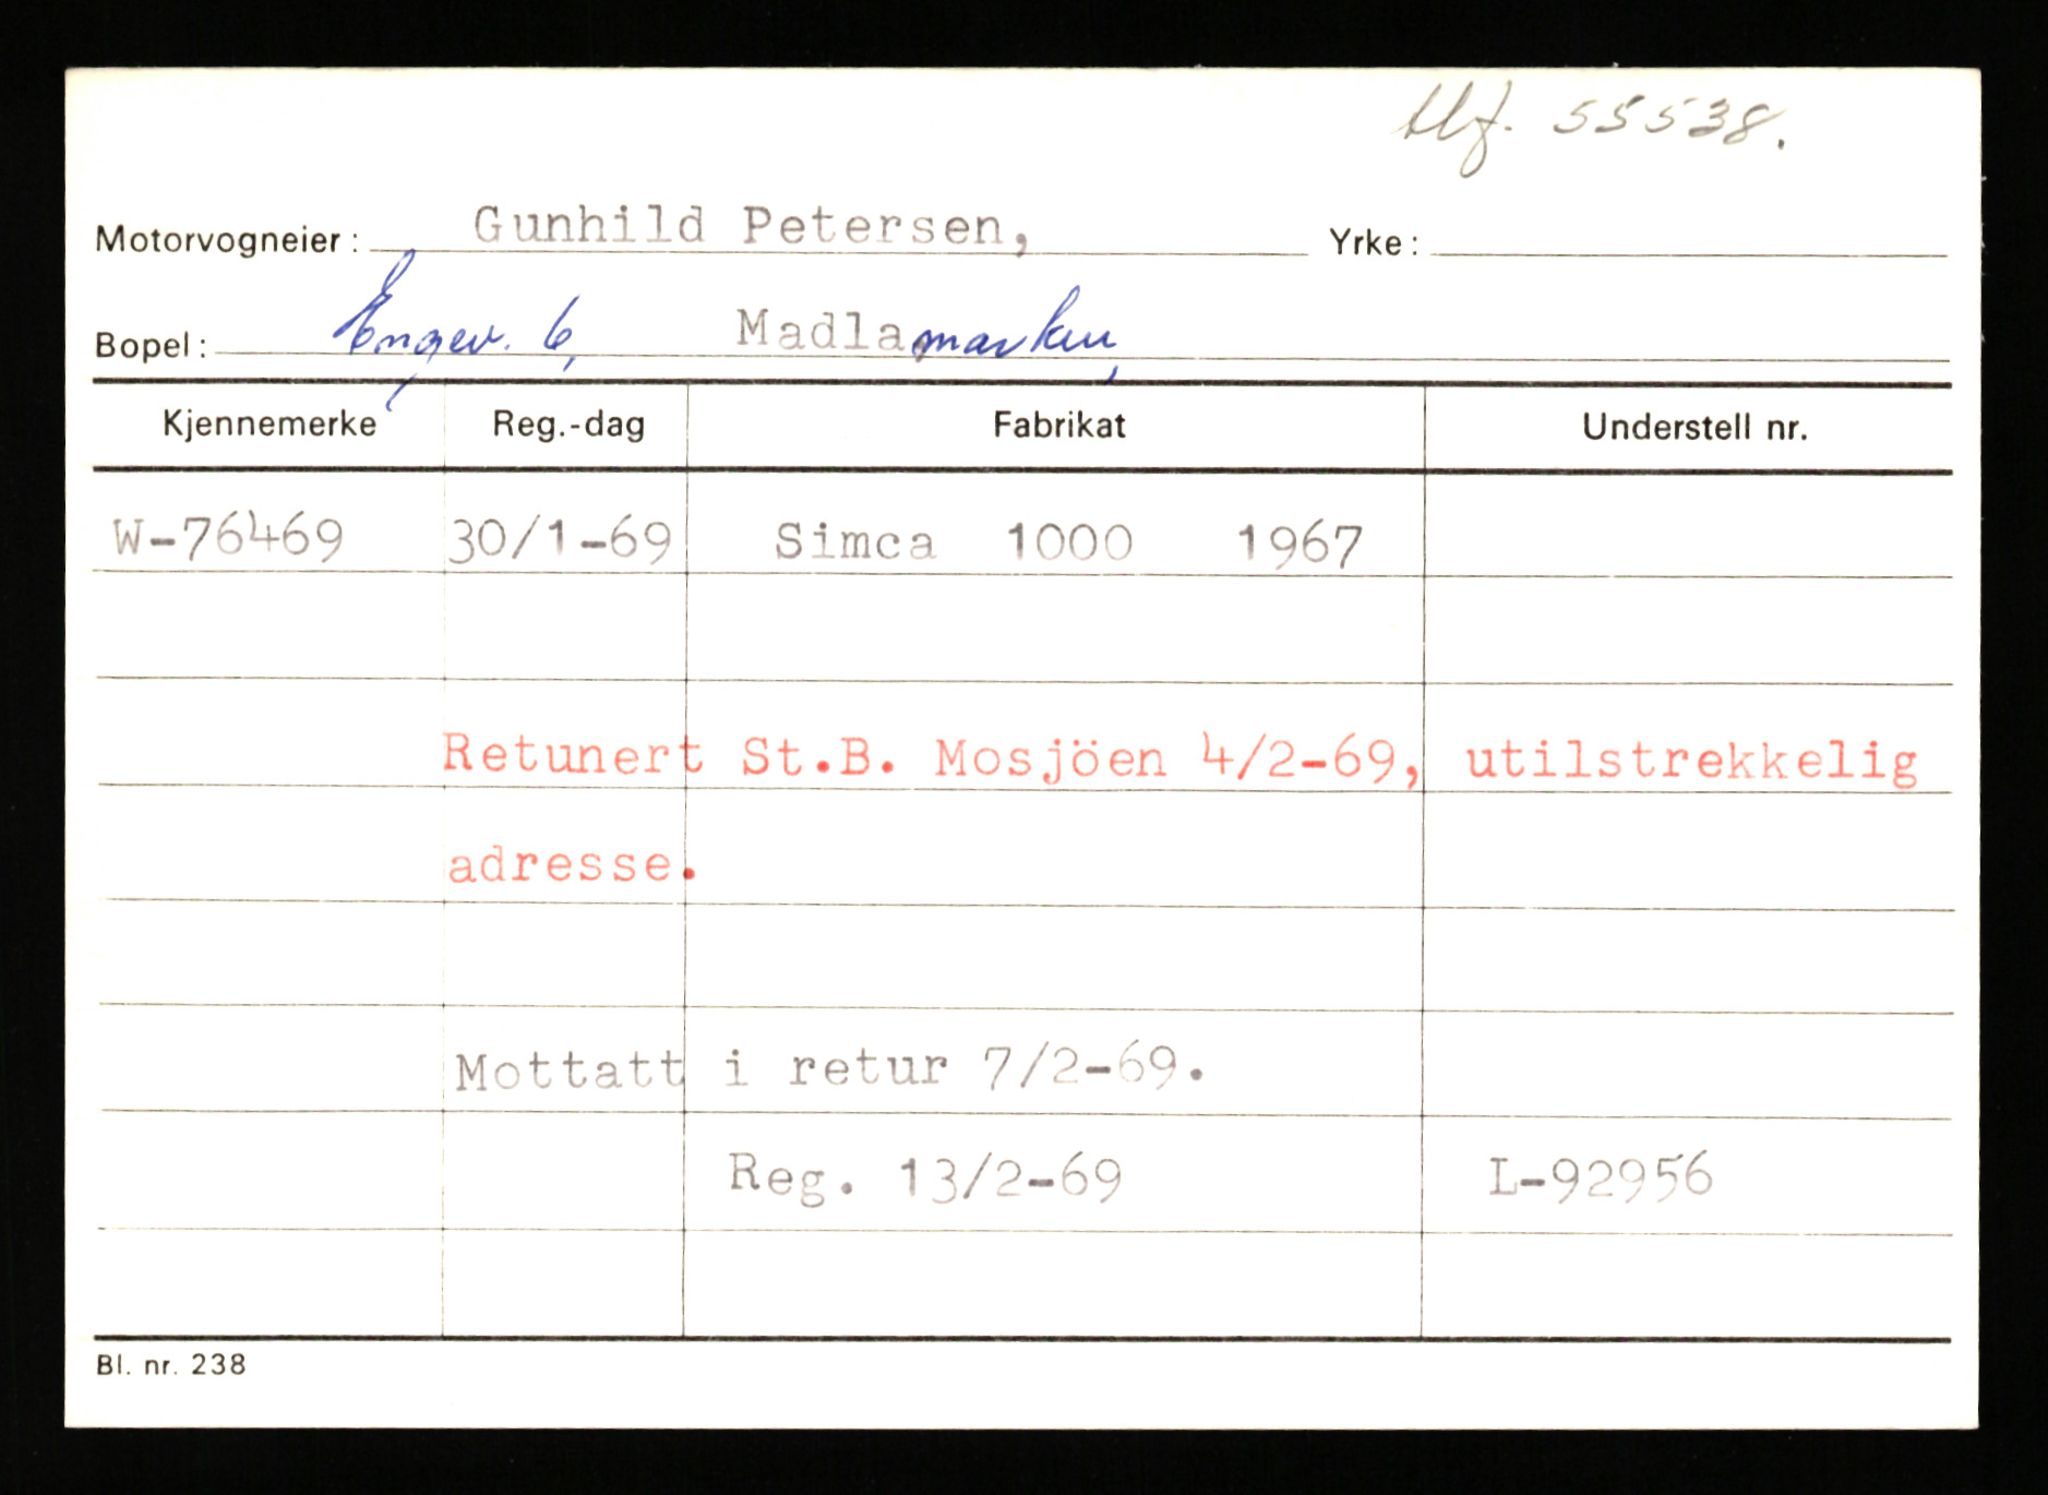 tlf. 55538.
Motorvogneier: Gunhild Petersen, Yrke:
Bopel: Engev. 6, Madlamarken,
Kjennemerke Reg.-dag Fabrikat Understell nr.
W-76469 30/1-69 Simca 1000 1967
Retunert St.B. Mosjöen 4/2-69, utilstrekkelig
adresse.
Mottatt i retur 7/2-69.
Reg. 13/2-69 L-92956
Bl. nr. 238